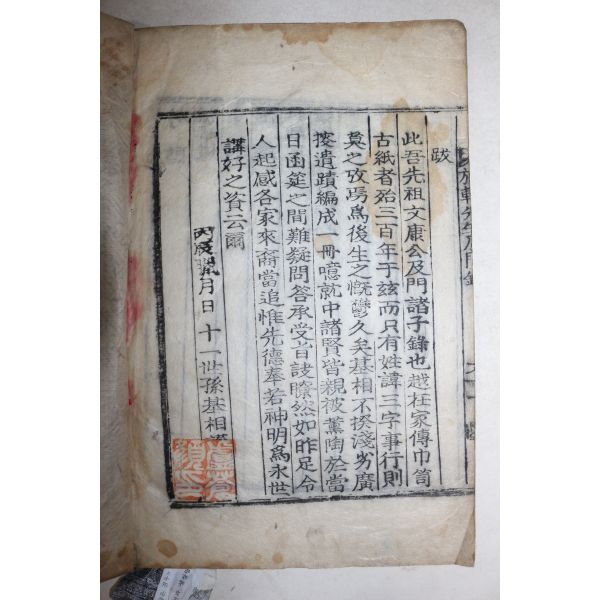 跋
此吾先祖文康公及門諸子錄也越在家傳巾笥
古紙者殆三百年于玆而只有姓諱三字事行則
莫之攷焉爲後生之慨鬱久矣基相不揆淺劣廣
搜遺蹟編成一冊噫就中諸賢皆親被薰陶於當
日函筵之間難疑問答承受旨訣瞭然如昨足令
人起感各家來裔當追惟先德奉若神明爲永世
講好之資云爾
丙辰臘月日十一世孫基相
旅軒先生及門錄